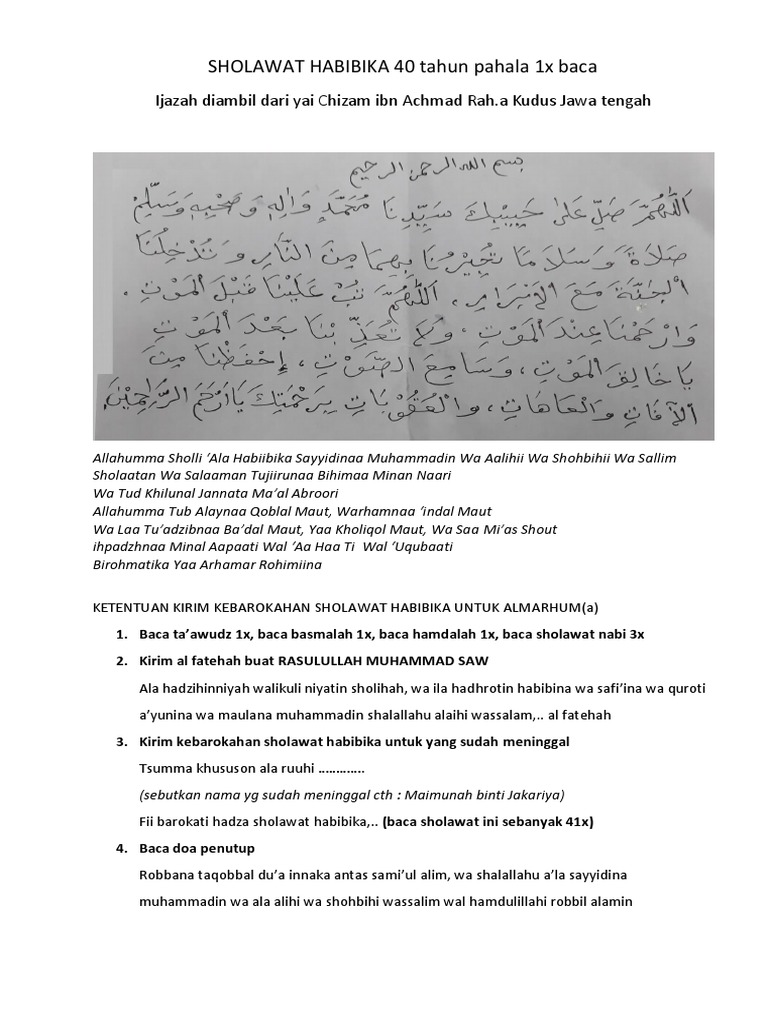 SHOLAWAT HABIBIKA 40 tahun pahala 1x baca
Ijazah diambil dari yai Chizam ibn Achmad Rah.a Kudus Jawa tengah
بسم الله الرحمن الرحيم
اَللّٰهُمَّ صَلِّ عَلَى حَبِيْبِكَ سَيِّدِنَا مُحَمَّدٍ وَاٰلِهِ وَصَحْبِهِ وَسَلِّمْ
صَلَاةً وَسَلَامًا تُجِيْرُنَا بِهِمَا مِنَ النَّارِ وَتُدْخِلُنَا
الْجَنَّةَ مَعَ الْاَبْرَارِ، اَللّٰهُمَّ تُبْ عَلَيْنَا قَبْلَ الْمَوْتِ،
وَارْحَمْنَا عِنْدَ الْمَوْتِ، وَلَا تُعَذِّبْنَا بَعْدَ الْمَوْتِ
يَا خَالِقَ الْمَوْتِ، وَسَامِعَ الصَّوْتِ، اِحْفَظْنَا مِنَ
الْاٰفَاتِ وَالْعَاهَاتِ، وَالْعُقُوْبَاتِ بِرَحْمَتِكَ يَا اَرْحَمَ الرَّاحِمِيْنَ
Allahumma Sholli ’Ala Habiibika Sayyidinaa Muhammadin Wa Aalihii Wa Shohbihii Wa Sallim
Sholaatan Wa Salaaman Tujiirunaa Bihimaa Minan Naari
Wa Tud Khilunal Jannata Ma’al Abroori
Allahumma Tub Alaynaa Qoblal Maut, Warhamnaa ’indal Maut
Wa Laa Tu’adzibnaa Ba’dal Maut, Yaa Kholiqol Maut, Wa Saa Mi’as Shout
ihpadzhnaa Minal Aapaati Wal ’Aa Haa Ti Wal ’Uqubaati
Birohmatika Yaa Arhamar Rohimiina
KETENTUAN KIRIM KEBAROKAHAN SHOLAWAT HABIBIKA UNTUK ALMARHUM(a)
1. Baca ta’awudz 1x, baca basmalah 1x, baca hamdalah 1x, baca sholawat nabi 3x
2. Kirim al fatehah buat RASULULLAH MUHAMMAD SAW
Ala hadzihinniyah walikuli niyatin sholihah, wa ila hadhrotin habibina wa safi’ina wa quroti
a’yunina wa maulana muhammadin shalallahu alaihi wassalam,.. al fatehah
3. Kirim kebarokahan sholawat habibika untuk yang sudah meninggal
Tsumma khususon ala ruuhi .............
(sebutkan nama yg sudah meninggal cth : Maimunah binti Jakariya)
Fii barokati hadza sholawat habibika,.. (baca sholawat ini sebanyak 41x)
4. Baca doa penutup
Robbana taqobbal du’a innaka antas sami’ul alim, wa shalallahu a’la sayyidina
muhammadin wa ala alihi wa shohbihi wassalim wal hamdulillahi robbil alamin